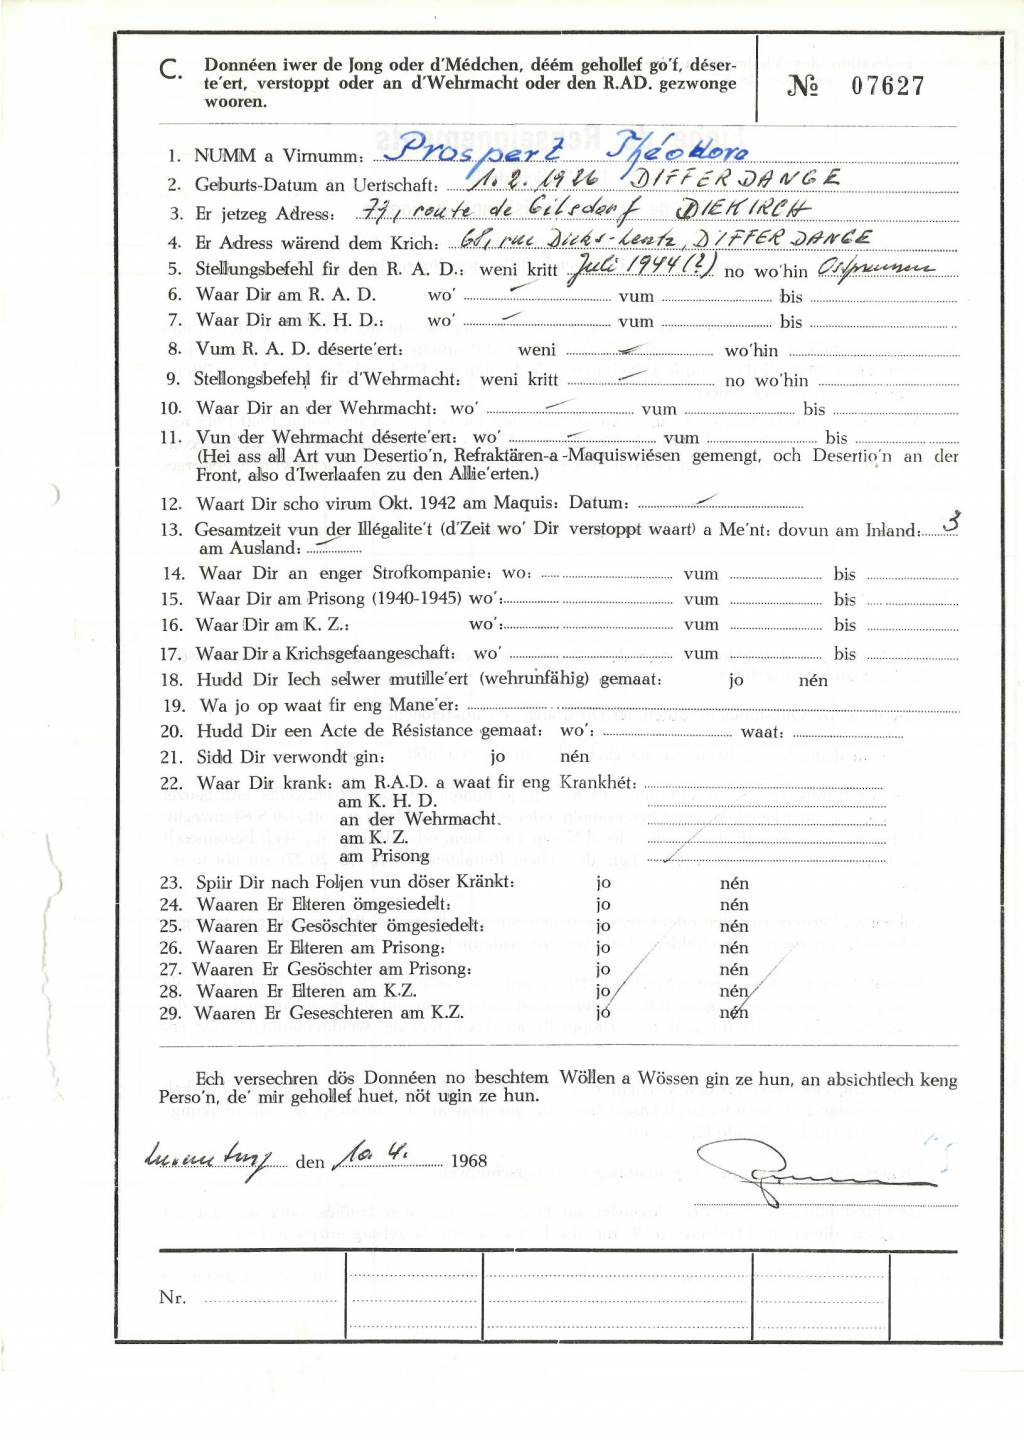 C. Donnéen iwer de Jong oder d'Médchen, déém gehollef go'f, déser-
te'ert, verstoppt oder an d'Wehrmacht oder den R.AD. gezwonge
wooren.
№ 07627
1. NUMM a Virnumm: Prospert Théodore
2. Geburts-Datum an Uertschaft: 1.2.1926 DIFFERDANGE
3. Er jetzeg Adress: 77, route de Gilsdorf DIEKIRCH
4. Er Adress wärend dem Krich: 68, rue Dicks-Lentz, DIFFERDANGE
5. Stellungsbefehl fir den R. A. D.: weni kritt Juli 1944(?) no wo'hin Ostpreussen
6. Waar Dir am R. A. D. wo' vum bis
7. Waar Dir am K. H. D.: wo' vum bis
8. Vum R. A. D. déserte'ert: weni wo'hin
9. Stellongsbefehl fir d'Wehrmacht: weni kritt no wo'hin
10. Waar Dir an der Wehrmacht: wo' vum bis
11. Vun der Wehrmacht déserte'ert: wo' vum bis
(Hei ass all Art vun Desertio'n, Refraktären-a-Maquiswiésen gemengt, och Desertio'n an der
Front, also d'Iwerlaafen zu den Allie'erten.)
12. Waart Dir scho virum Okt. 1942 am Maquis: Datum:
13. Gesamtzeit vun der Illégalite't (d'Zeit wo' Dir verstoppt waart) a Me'nt: dovun am Inland: 3
am Ausland:
14. Waar Dir an enger Strofkompanie: wo: vum bis
15. Waar Dir am Prisong (1940-1945) wo': vum bis
16. Waar Dir am K. Z.: wo': vum bis
17. Waar Dir a Krichsgefaangeschaft: wo' vum bis
18. Hudd Dir Iech selwer mutille'ert (wehrunfähig) gemaat: jo nén
19. Wa jo op waat fir eng Mane'er:
20. Hudd Dir een Acte de Résistance gemaat: wo': waat:
21. Sidd Dir verwondt gin: jo nén
22. Waar Dir krank: am R.A.D. a waat fir eng Krankhét:
am K. H. D.
an der Wehrmacht.
am K. Z.
am Prisong
23. Spiir Dir nach Foljen vun döser Kränkt: jo nén
24. Waaren Er Elteren ömgesiedelt: jo nén
25. Waaren Er Gesöschter ömgesiedelt: jo nén
26. Waaren Er Elteren am Prisong: jo nén
27. Waaren Er Gesöschter am Prisong: jo nén
28. Waaren Er Elteren am K.Z. jo nén
29. Waaren Er Geseschteren am K.Z. jo nén
Ech versechren dös Donnéen no beschtem Wöllen a Wössen gin ze hun, an absichtlech keng
Perso'n, de' mir gehollef huet, nöt ugin ze hun.
Luxemburg den 10. 4. 1968
Nr.